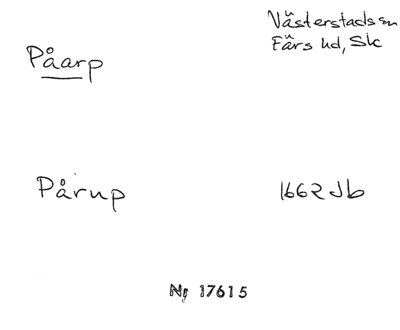 Påarp
Västerstads sn
Färs hd, Sk
Pårup
1662 Jb
Nr 17615